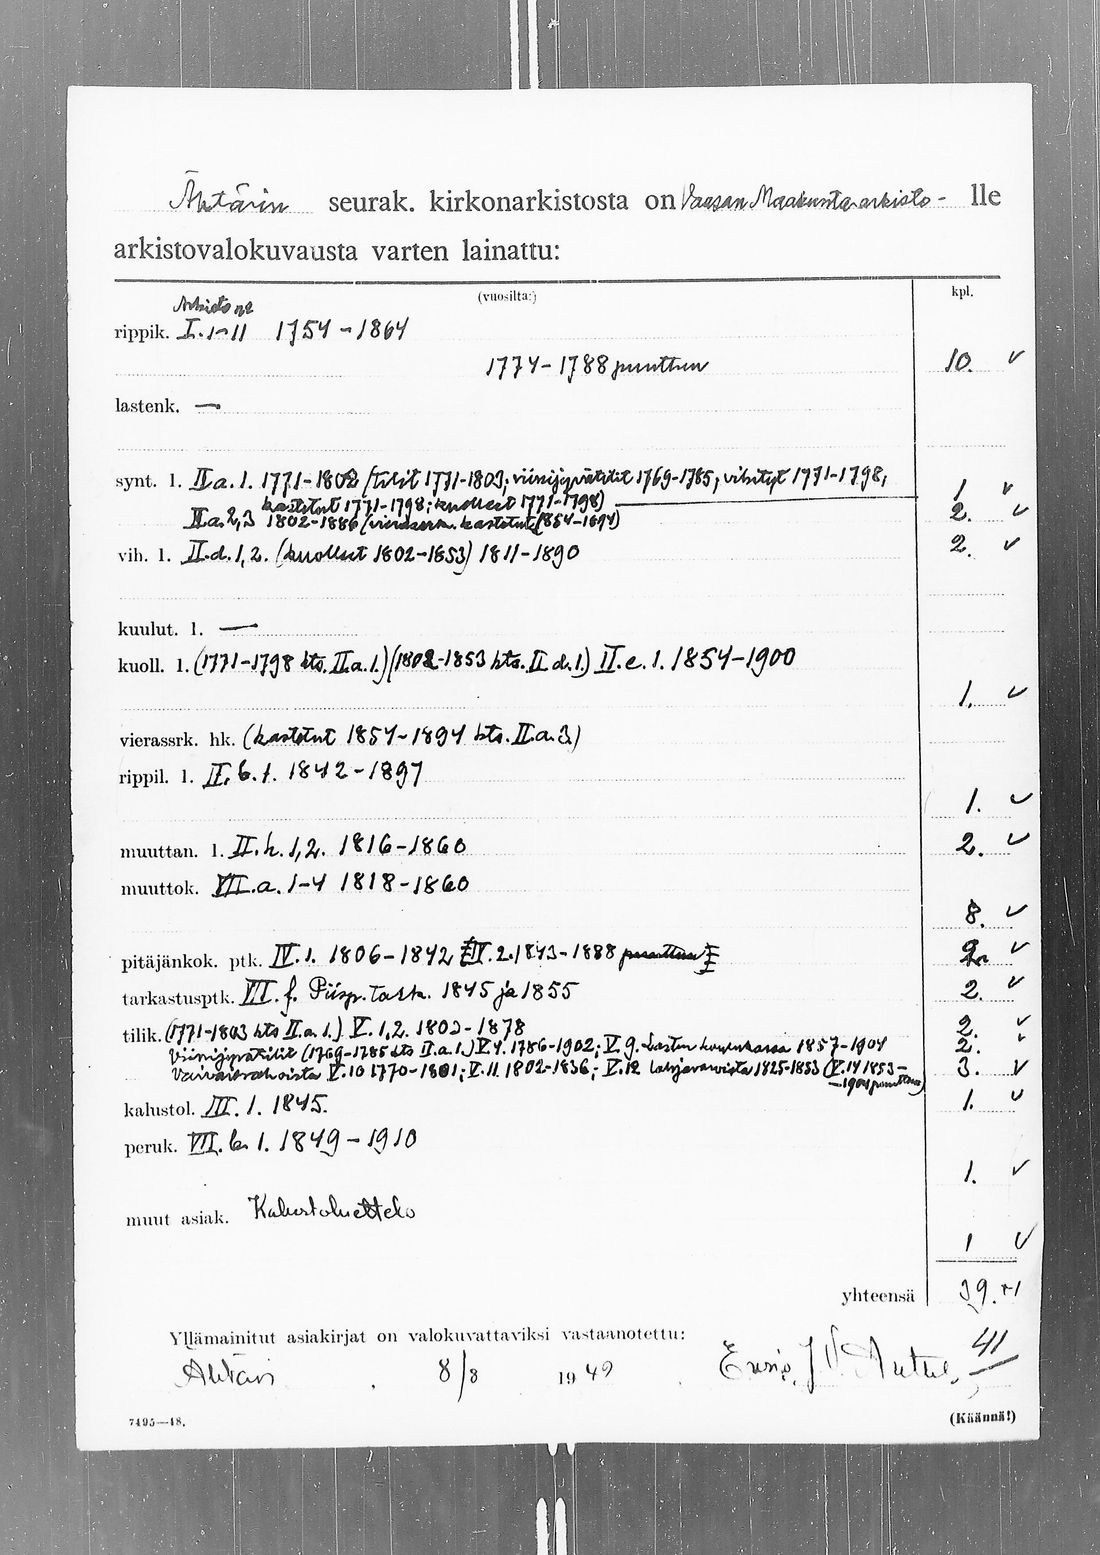 Ähtärin seurak. kirkonarkistosta on Vaasan Maakunta-arkisto - lle
arkistovalokuvausta varten lainattu:
(vuosilta:) kpl.
Arkisto nr
rippik. I. 1-11 1754-1864
1774-1788 puuttuu 10. ✓
lastenk. —
synt. l. II a. 1. 1771-1802 (tilit 1771-1803; viinijyvätilit 1769-1785; vihityt 1771-1798,
kastetut 1771-1798; kuolleet 1771-1798) 1 ✓
II a. 2,3 1802-1886 (vierassrk. kastetut 1854-1894) 2. ✓
vih. l. II.d. 1,2. (kuolleet 1802-1853) 1811-1890 2. ✓
kuulut. l. —
kuoll. l. (1771-1798 kts. II.a.1.) (1802-1853 kts. II d.1.) II.e.1. 1854-1900
1. ✓
vierassrk. hk. (kastetut 1854-1894 kts. II.a.3)
rippil. l. II.b.1. 1842-1897
1. ✓
muuttan. l. II.h.1,2. 1816-1860 2. ✓
muuttok. VII.a.1-4 1818-1860
8. ✓
pitäjänkok. ptk. IV.1. 1806-1842 IV.2. 1843-1888 puuttuu 2. ✓
tarkastusptk. VII.f. Piisp. tark. 1845 ja 1855 2. ✓
tilik. (1771-1803 kts II.a.1.) V.1,2. 1803-1878 2. ✓
Viinijyvätilit (1769-1785 kts II.a.1.) V.4. 1786-1902; V.9. Lasten koulukassa 1857-1904 2. ✓
Vaivaisrahoista V.10 1770-1801; V.11. 1802-1836; V.12 Lahjavaroista 1825-1853 (V.14 1853-
-1904 puuttuu) 3. ✓
kalustol. III.1. 1845. 1. ✓
peruk. VII.b.1. 1849-1910
1. ✓
muut asiak. Kalustoluettelo
1 ✓
yhteensä 39. +1
41
Yllämainitut asiakirjat on valokuvattaviksi vastaanotettu:
Ähtäri 8/8 1949
7495—48. (Käännä!)